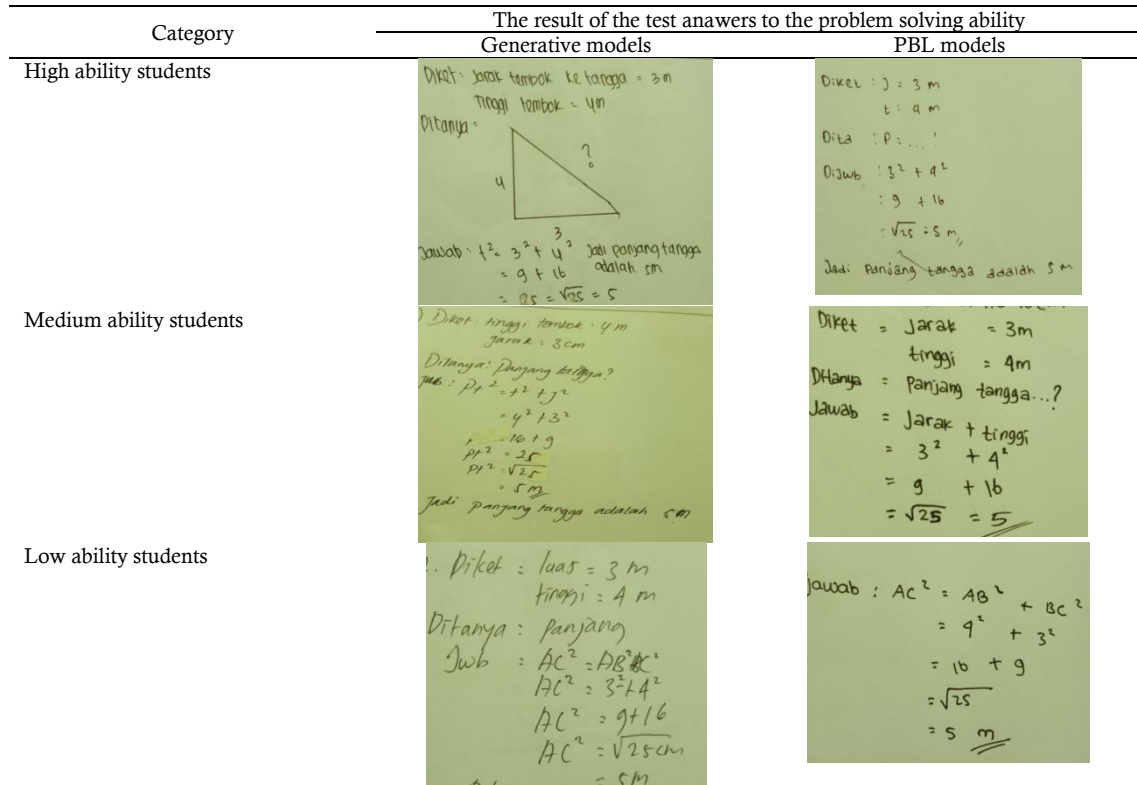 The result of the test anawers to the problem solving ability
Category
Generative models
PBL models
High ability students
Diket: Jarak tembok ke tangga = 3m
tinggi tembok = 4m
Ditanya =
?
4
3
Jawab: t² = 3² + 4²
Jadi panjang tangga
= 9 + 16
adalah 5m
= 25 = √25 = 5
Diket : j = 3 m
t = 4 m
Dita : P = ... !
Dijwb : 3² + 4²
: 9 + 16
: √25 = 5 m
Jadi Panjang tangga adalah 5 m
Medium ability students
Diket: tinggi tembok = 4 m
Jarak = 3 cm
Ditanya: Panjang tangga?
Jwb : Pt² = t² + j²
= 4² + 3²
= 16 + 9
pt² = 25
pt² = √25
= 5 m
Jadi panjang tangga adalah 5m
Diket = Jarak = 3m
tinggi = 4m
Ditanya = Panjang tangga...?
Jawab = Jarak + tinggi
= 3² + 4²
= 9 + 16
= √25 = 5
Low ability students
2. Diket = luas = 3 m
tinggi = 4 m
Ditanya : Panjang
Jwb : AC² = AB²+BC²
AC² = 3²+4²
AC² = 9+16
AC² = √25cm
= 5M
Jawab : AC² = AB² + BC²
= 4² + 3²
= 16 + 9
= √25
= 5 m